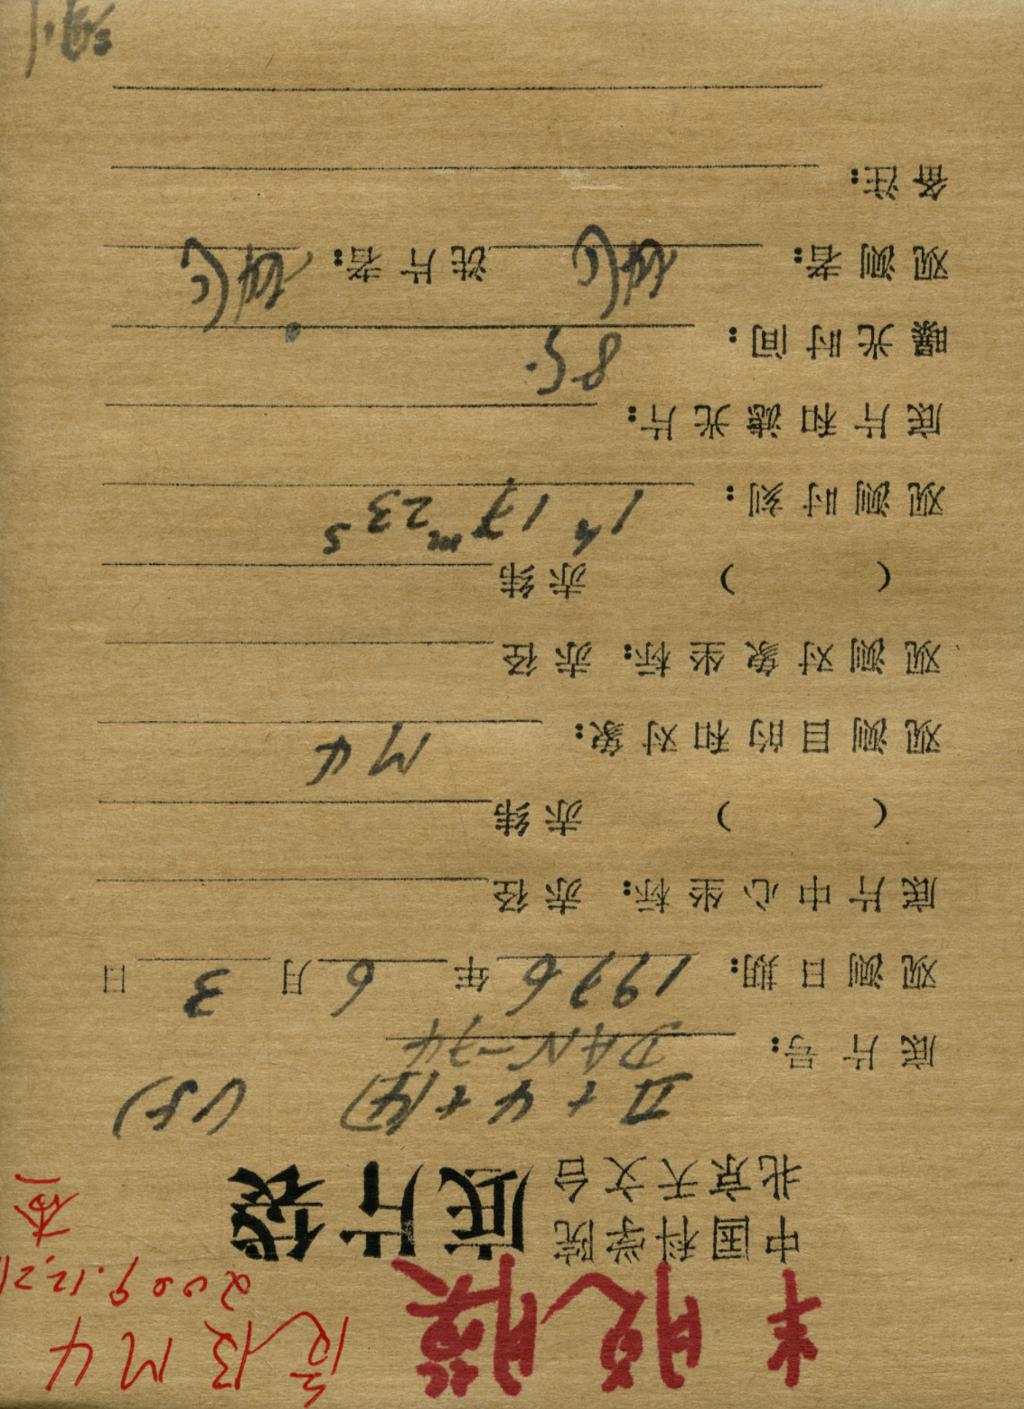 半脱膜
M4
2009.12.21
中国科学院
北京天文台
底片袋
底片号: DAN-74
观测日期: 1996 年 6 月 3 日
底片中心坐标: 赤径
( ) 赤纬
观测目的和对象: M4
观测对象坐标: 赤径
( ) 赤纬
观测时刻: 1h 17m 23s
底片和滤光片:
曝光时间: 85.
观测者: 洗片者:
备注: